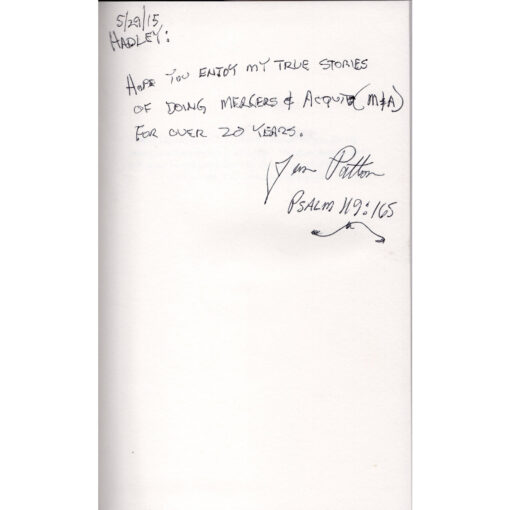 5/29/15
HADLEY:
HOPE YOU ENJOY MY TRUE STORIES
OF DOING MERGERS & (M&A)
FOR OVER 20 YEARS.
Patton
PSALM 119:165